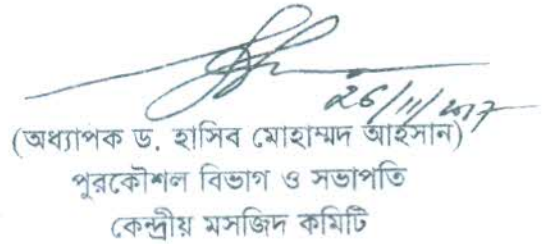 26/11/2017
(অধ্যাপক ড. হাসিব মোহাম্মদ আহসান)
পুরকৌশল বিভাগ ও সভাপতি
কেন্দ্রীয় মসজিদ কমিটি